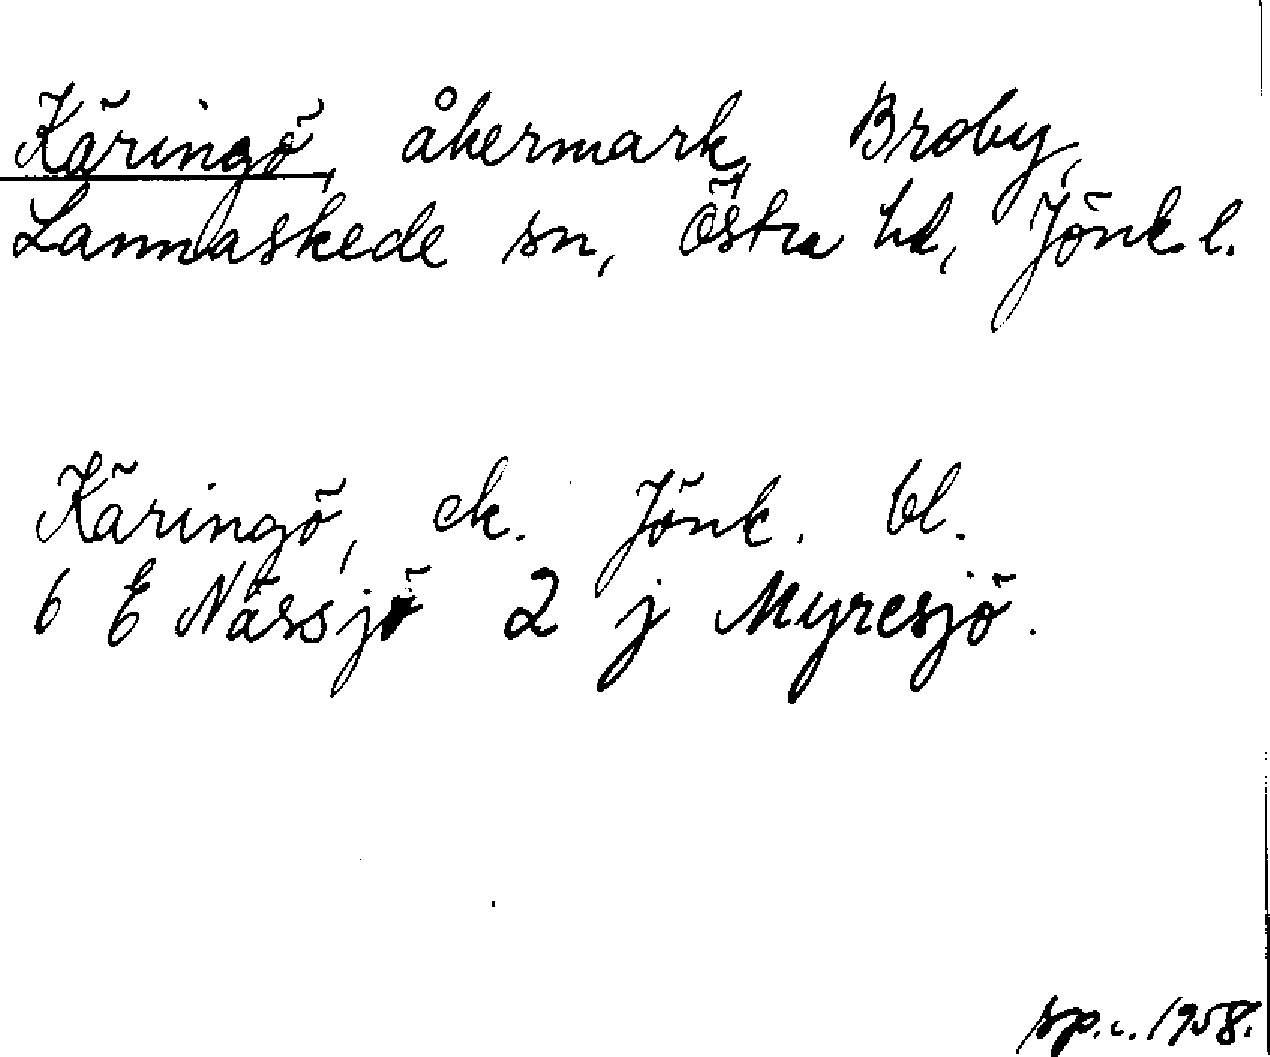 Käringö, åkermark, Broby,
Lannaskede sn, Östra hd, Jönk. l.
Käringö, ek. Jönk. bl.
6 E Nässjö 2 j Myresjö.
sp.c. 1958.